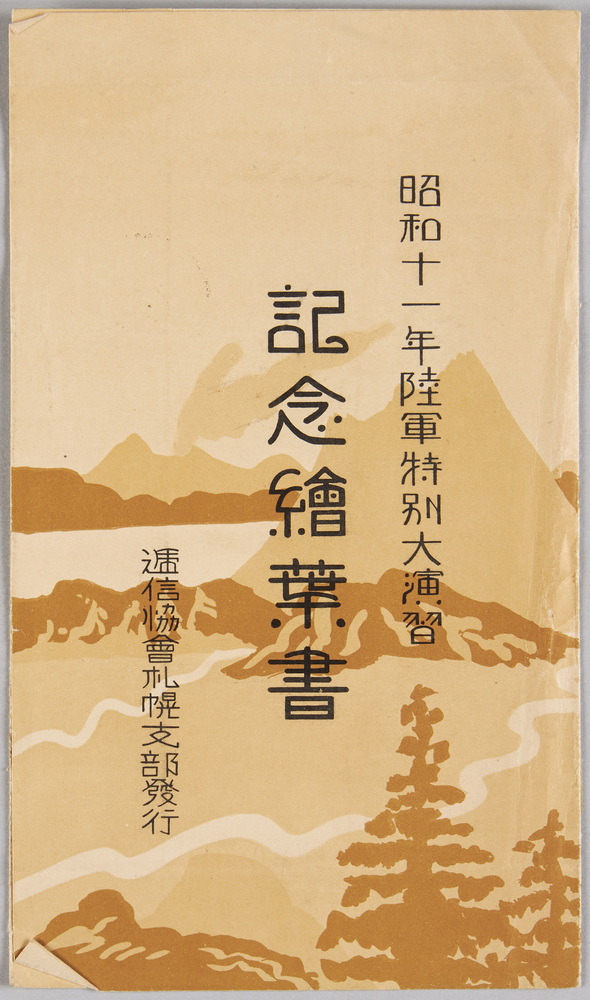 昭和十一年陸軍特別大演習
記念繪葉書
逓信協會札幌支部發行